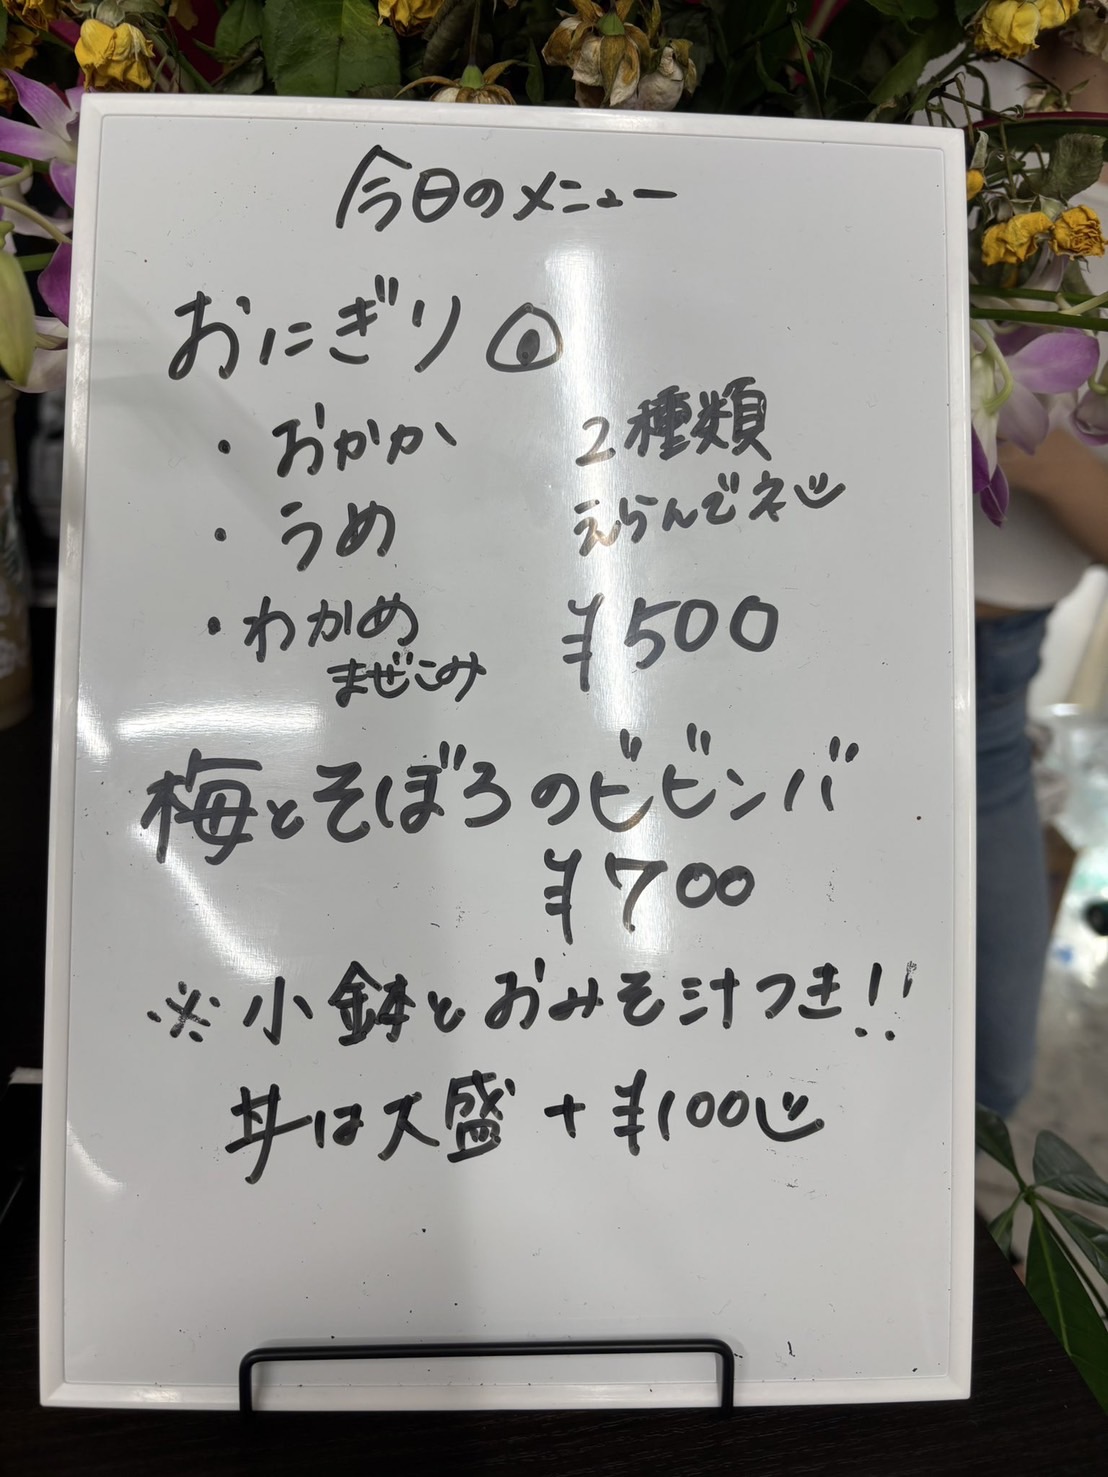 今日のメニュー
おにぎり
・おかか
2種類
・うめ
えらんでネ
・わかめ
まぜこみ
¥500
梅とそぼろのビビンバ
¥700
※小鉢とおみそ汁つき!!
丼は大盛+¥100